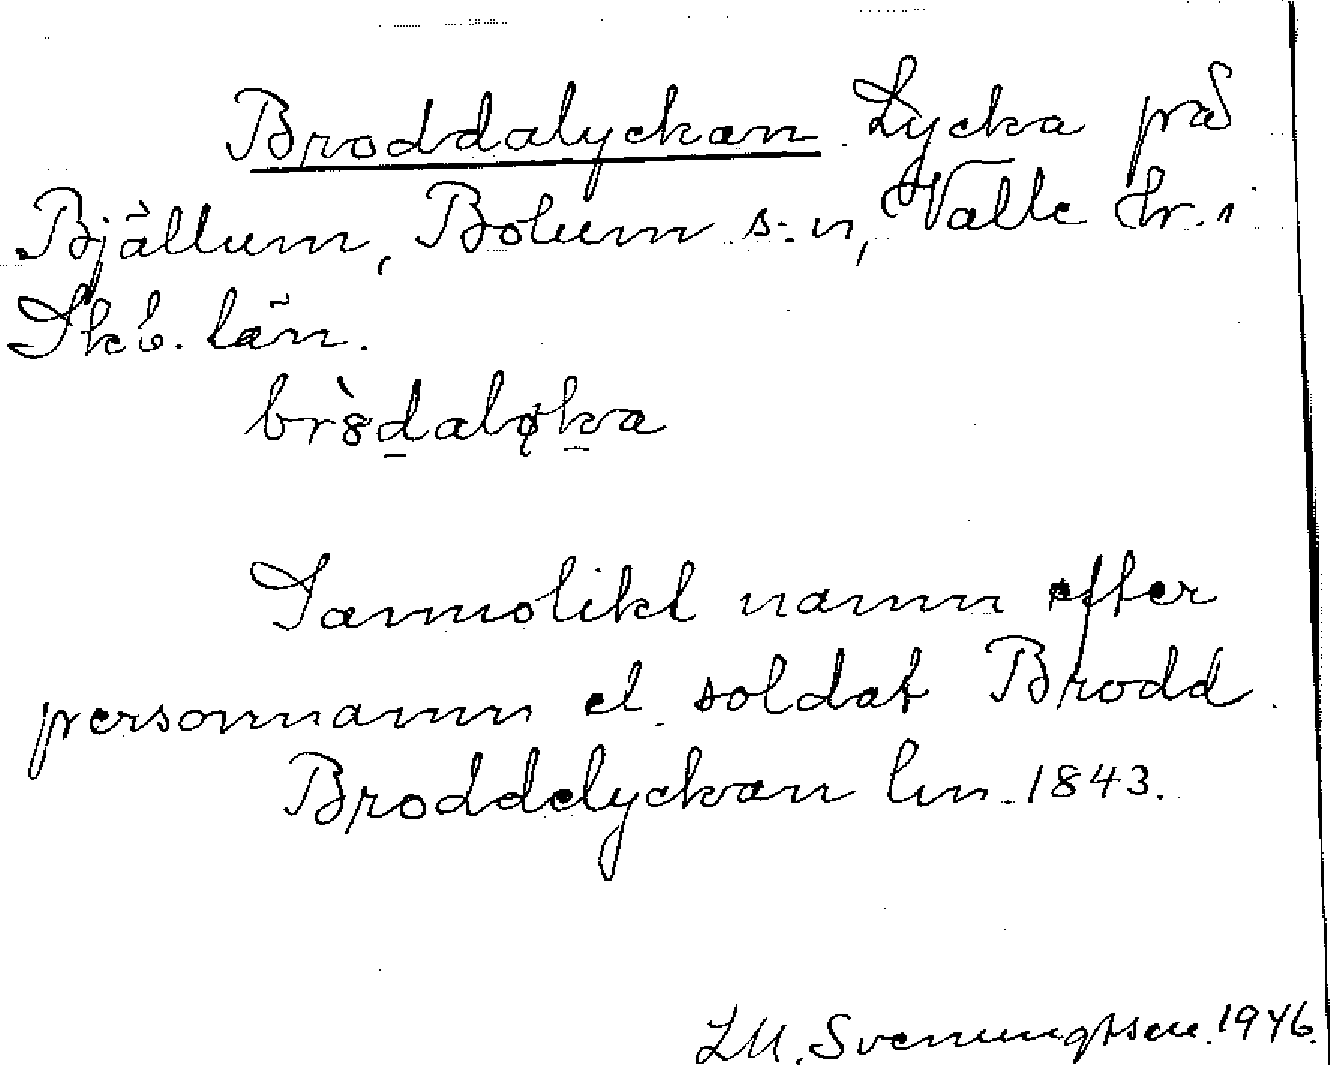 Broddalyckan Lycka på
Bjällum, Bolum s:n, Valle hr. i
Skb. län.
brȍdaløka
Sannolikt namn efter
personnamn el. soldat Brodd.
Broddelyckan lm. 1843.
LM. Svenungsson. 1946.